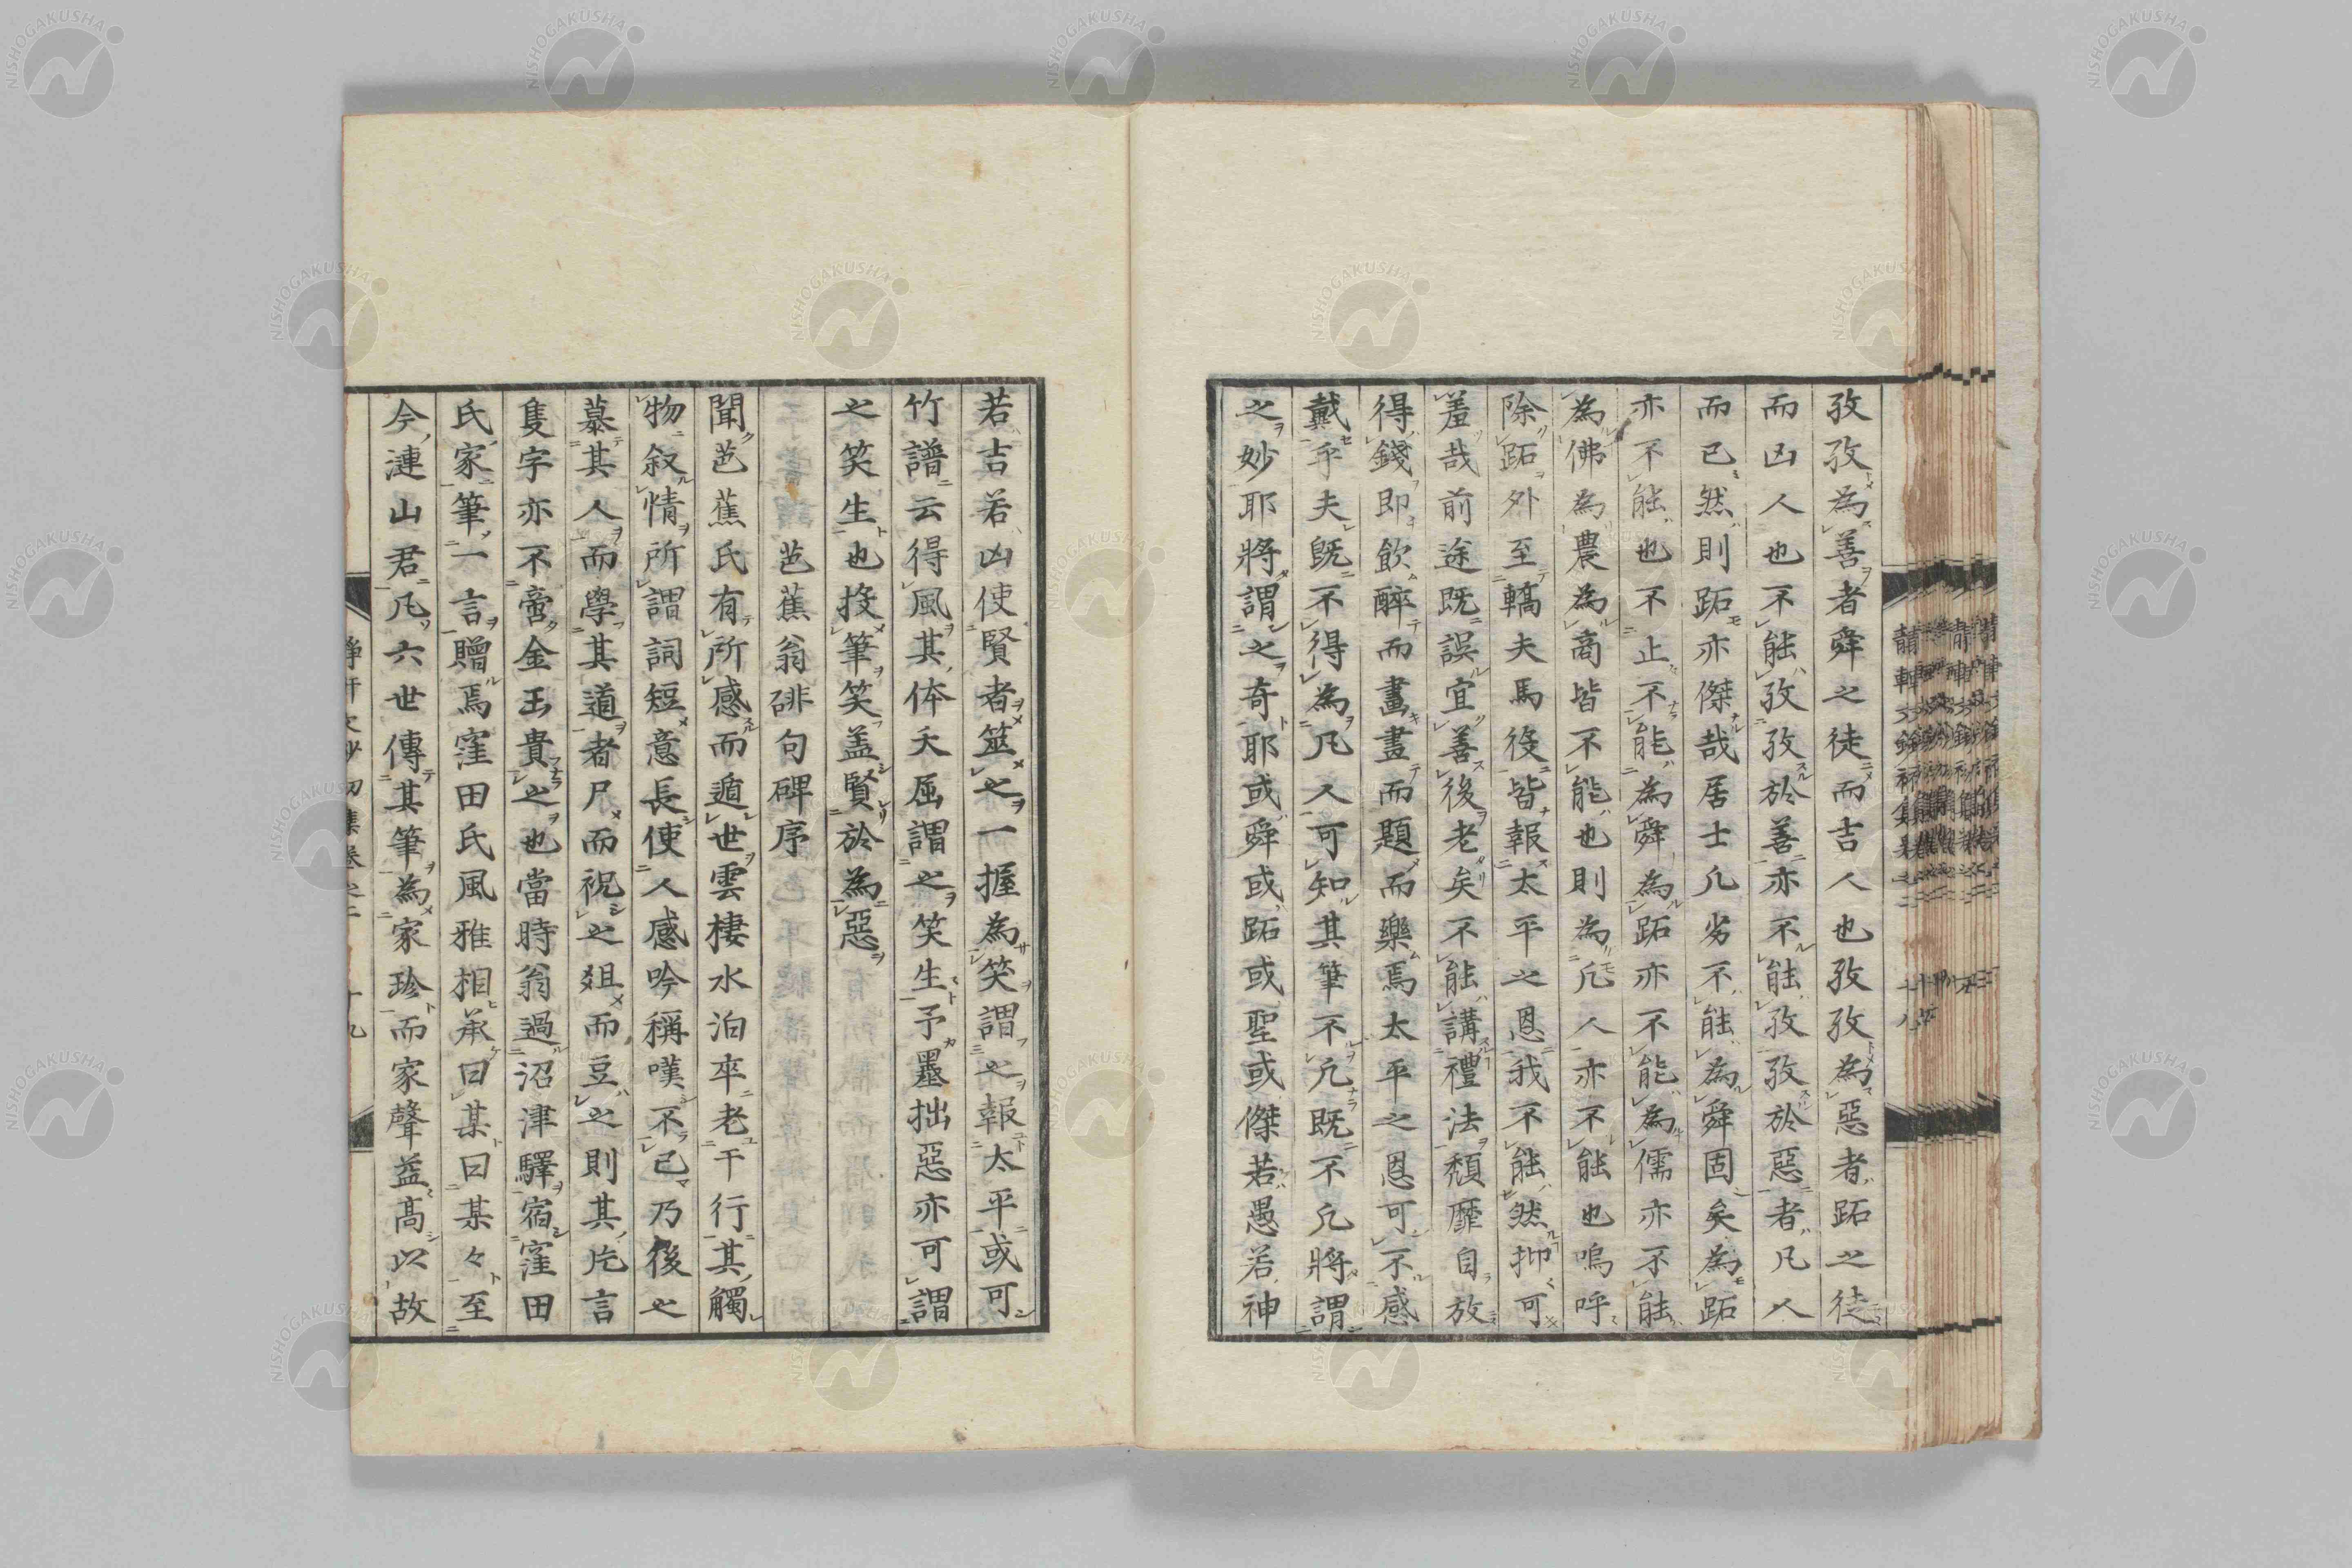 孜孜為善者舜之徒而吉人也孜孜為惡者跖之徒
而凶人也不能孜孜於善亦不能孜孜於惡者凡人
而已然則跖亦傑哉居士凡劣不能為舜固矣為跖
亦不能也不止不能為舜為跖亦不能為儒亦不能
為佛為農為商皆不能也則為凡人亦不能也嗚呼
除跖外至轎夫馬役皆報太平之恩我不能然抑可
羞哉前途既誤宜善後老矣不能講禮法頹靡自放
得錢即飲醉而畫畫而題而樂焉太平之恩可不感
戴乎夫既不得為凡人可知其筆不凡既不凡將謂
之妙耶將謂之奇耶或舜或跖或聖或傑若愚若神
若吉若凶使賢者筮之一握為笑謂之報太平或可
竹譜云得風其体夭屈謂之笑生予墨拙惡亦可謂
之笑生也投筆笑盖賢於為惡
芭蕉翁碑句碑序
聞芭蕉氏有所感而遁世雲棲水泊卒老于行其觸
物叙情所謂詞短意長使人感吟稱嘆不已乃後之
慕其人而學其道者尸而祝之爼而豆之則其片言
隻字亦不啻金玉貴之也當時翁過沼津驛宿窪田
氏家筆一言贈焉窪田氏風雅相承曰某曰某々至
今漣山君凡六世傳其筆為家珍而家聲益高以故
NISHOGAKUSHA